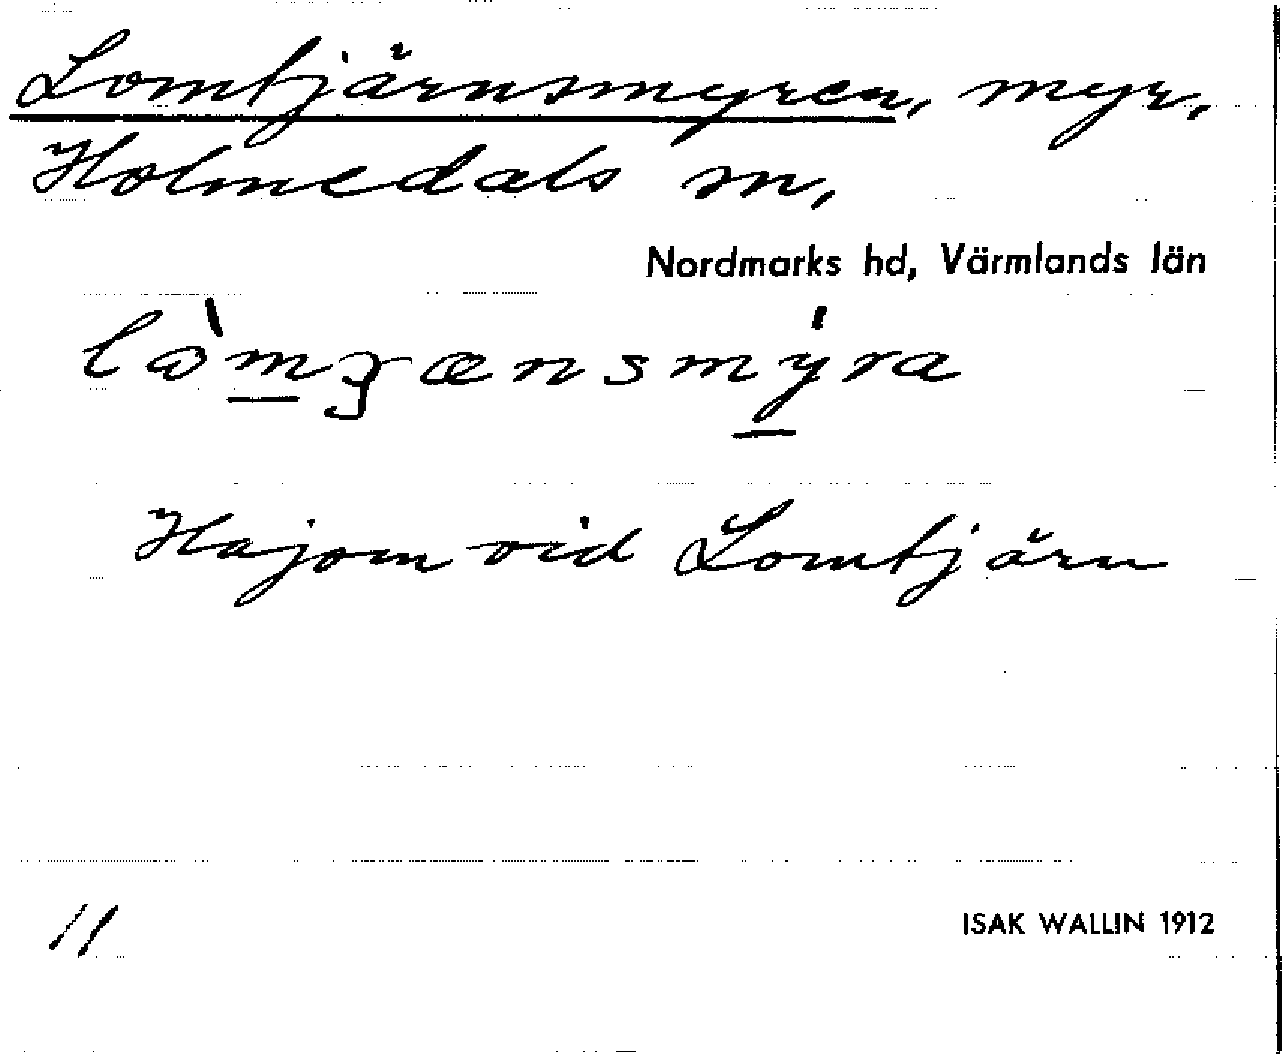 Lomtjärnsmyren, myr,
Holmedals sn,
Nordmarks hd, Värmlands län
Hajom vid Lomtjärn
11
ISAK WALLIN 1912